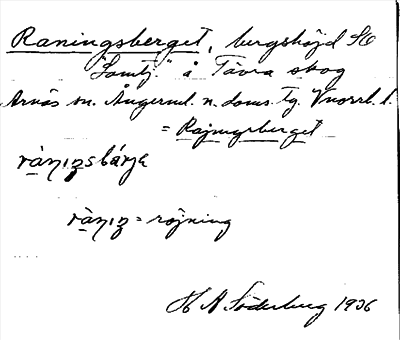 Raningsberget, bergshöjd SO
"Samtj." å Tävra skog
Arnäs sn. Ångerml. n. doms. Tg. Vnorrl. l.
= Röjningsberget
ràṇiṇsbárja
ràṇiṇ = röjning
H A Söderberg 1936